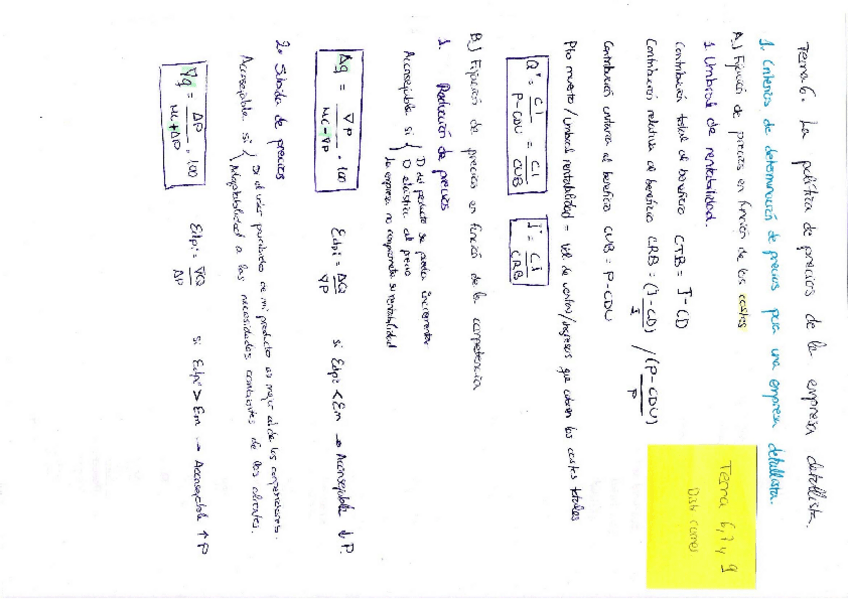 Tema 6. La política de precios de la empresa detallista.
1. Criterios de determinación de precios para una empresa detallista.
A) Fijación de precios en función de los costes
1. Umbral de rentabilidad.
Contribución total al beneficio CTB = I - CD
Contribución relativa al beneficio CRB = (I - CD) / I / (P - CDU) / P
Contribución unitaria al beneficio CUB = P - CDU
Pto muerto / umbral rentabilidad = Vol de ventas / ingresos que cubren los costes totales
Q' = CI / P - CDU = CI / CUB
I' = CI / CRB
B) Fijación de precios en función de la competencia
1. Reducción de precios
Aconsejable si { D del producto se puede incrementar
D elástica al precio
La empresa no compromete su rentabilidad
Δq = ∇P / MC - ∇P · 100
Edpi = ΔQ / ∇P
si Edpi < Em → Aconsejable ↓ P.
2. Subida de precios
Aconsejable si { Si el valor percibido de mi producto es mejor al de los competidores.
Adaptabilidad a las necesidades cambiantes de los clientes.
∇q = ΔP / MC + ΔP · 100
Edpi = ∇Q / ΔP
si Edpi > Em → Aconsejable ↑ P
Tema 6, 7 y 9
Distri comer